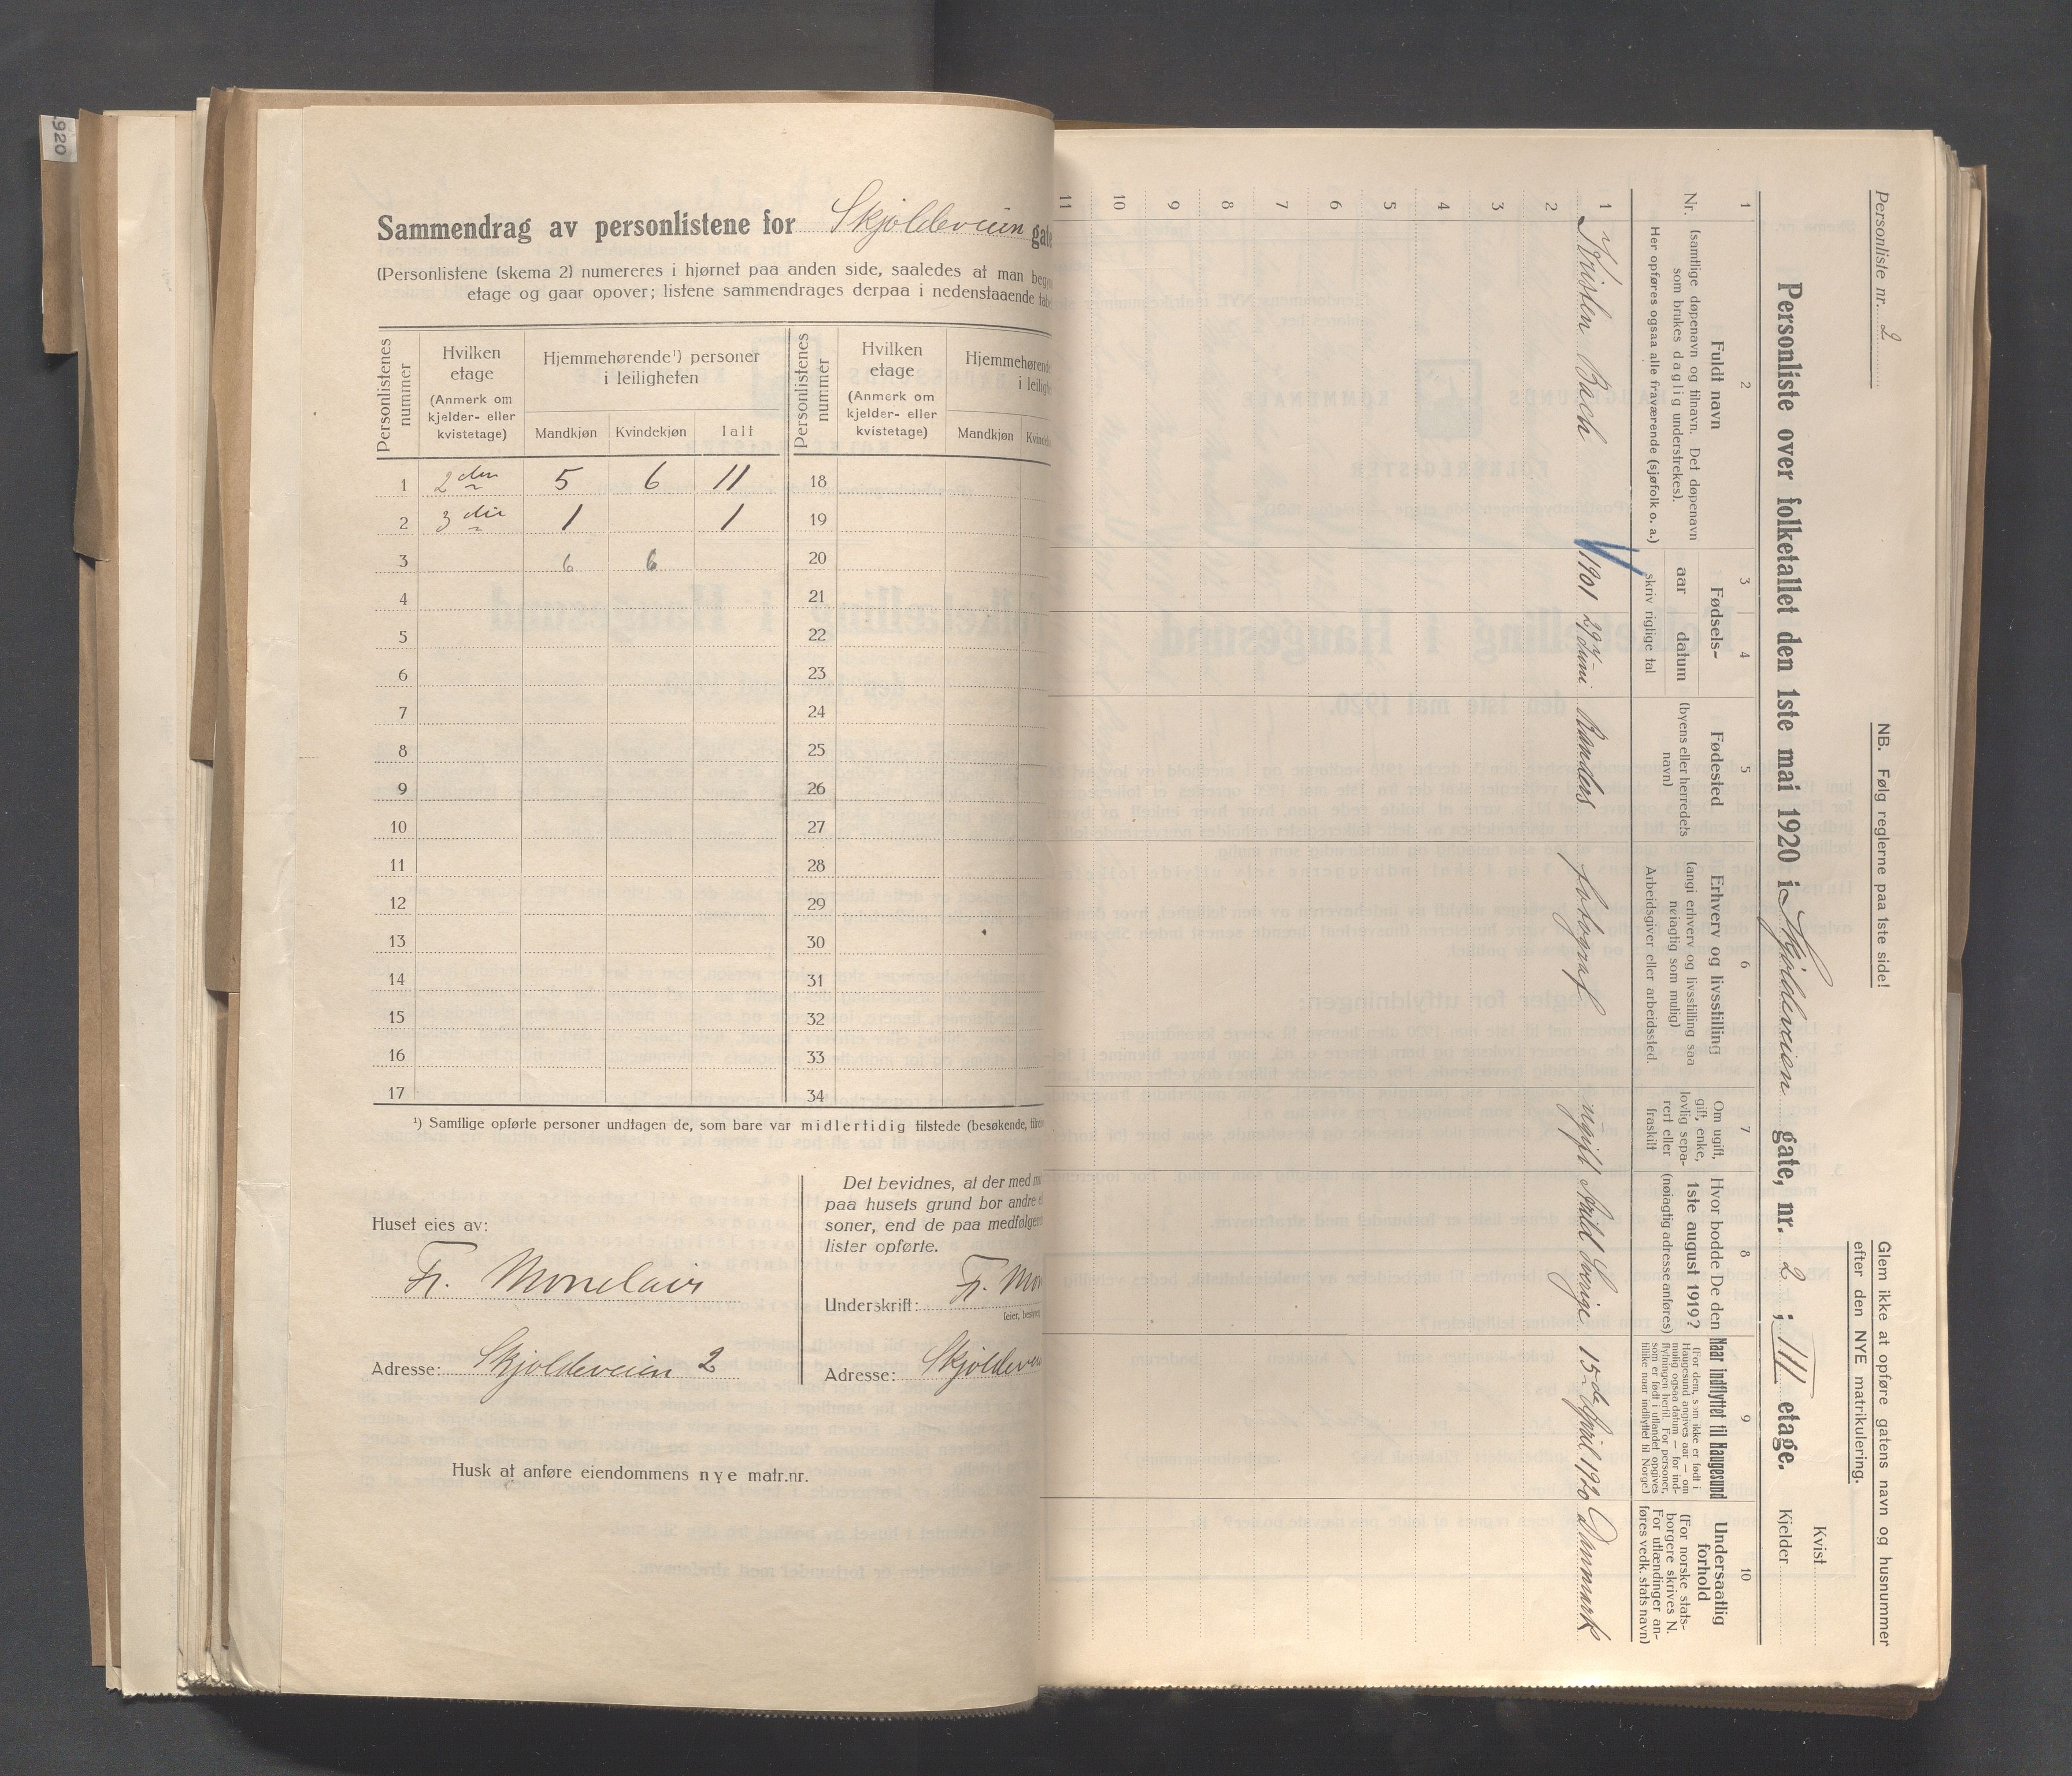 920
Sammendrag av personlistene for Skjoldeveien gate
(Personlistene (skema 2) numereres i hjørnet paa anden side, saaledes at man
etage og gaar opover; listene sammendrages derpaa i nedenstaaende
Personlistenes nummer
Hvilken etage
(Anmerk om kjelder- eller kvistetage)
Hjemmehørende¹) personer i leiligheten
Mandkjøn Kvindekjøn Ialt
Personlistenes nummer
Hvilken etage
(Anmerk om kjelder- eller kvistetage)
Mandkjøn
1 2den 5 6 11 18
2 3die 1 1 19
3 6 6 20
4 21
5 22
6 23
7 24
8 25
9 26
10 27
11 28
12 29
13 30
14 31
15 32
16 33
17 34
¹) Samtlige opførte personer undtagen de, som bare var midlertidig tilstede (besøkende,
Huset eies av:
Fr. Monclair
Adresse: Skjoldeveien 2
Det bevidnes, at der med
paa husets grund bor andre
soner, end de paa medfølgende
lister opførte.
Underskrift: Fr. Mon
Adresse: Skjoldeve
Husk at anføre eiendommens nye matr.nr.
Personliste nr. 2
NB. Følg reglerne paa 1ste side!
Glem ikke at opføre gatens navn og husnummer
efter den NYE matrikulering.
Personliste over folketallet den 1ste mai 1920 i Skjoldeveien gate, nr. 2 ; III etage.
Kvist
Kjelder
1 2 3 4 5 6 7 8 9 10
Nr.
Fuldt navn
(samtlige døpenavn og tilnavn. Det døpenavn
som brukes daglig understrekes).
Her opføres ogsaa alle fraværende (sjøfolk o. a.)
Fødsels-
aar datum
skriv rigtige tal
Fødested
(byens eller herredets
navn)
Erhverv og livsstilling
(angi erhverv og livsstilling saa
nøiagtig som mulig)
Arbeidsgiver eller arbeidssted.
Om ugift,
gift, enke,
lovlig sepa-
rert eller
fraskilt
Hvor bodde De den
1ste august 1919?
(nøiagtig adresse anføres)
Naar indflyttet til Haugesund
(For dem, som ikke er født i
Haugesund angives aar — om
mulig ogsaa datum — for ind-
flytningen hertil. For personer,
som er født i utlandet opgives
tillike naar indflyttet til Norge.)
Undersaatlig
forhold
(For norske stats-
borgere skrives N.
For utlændinger an-
føres vedk. stats navn)
1 Kristen Bach 1901 29 Juni Randers fotograf ugift Arild Sverige 15de April 1920 Danmark
2
3
4
5
6
7
8
9
10
11